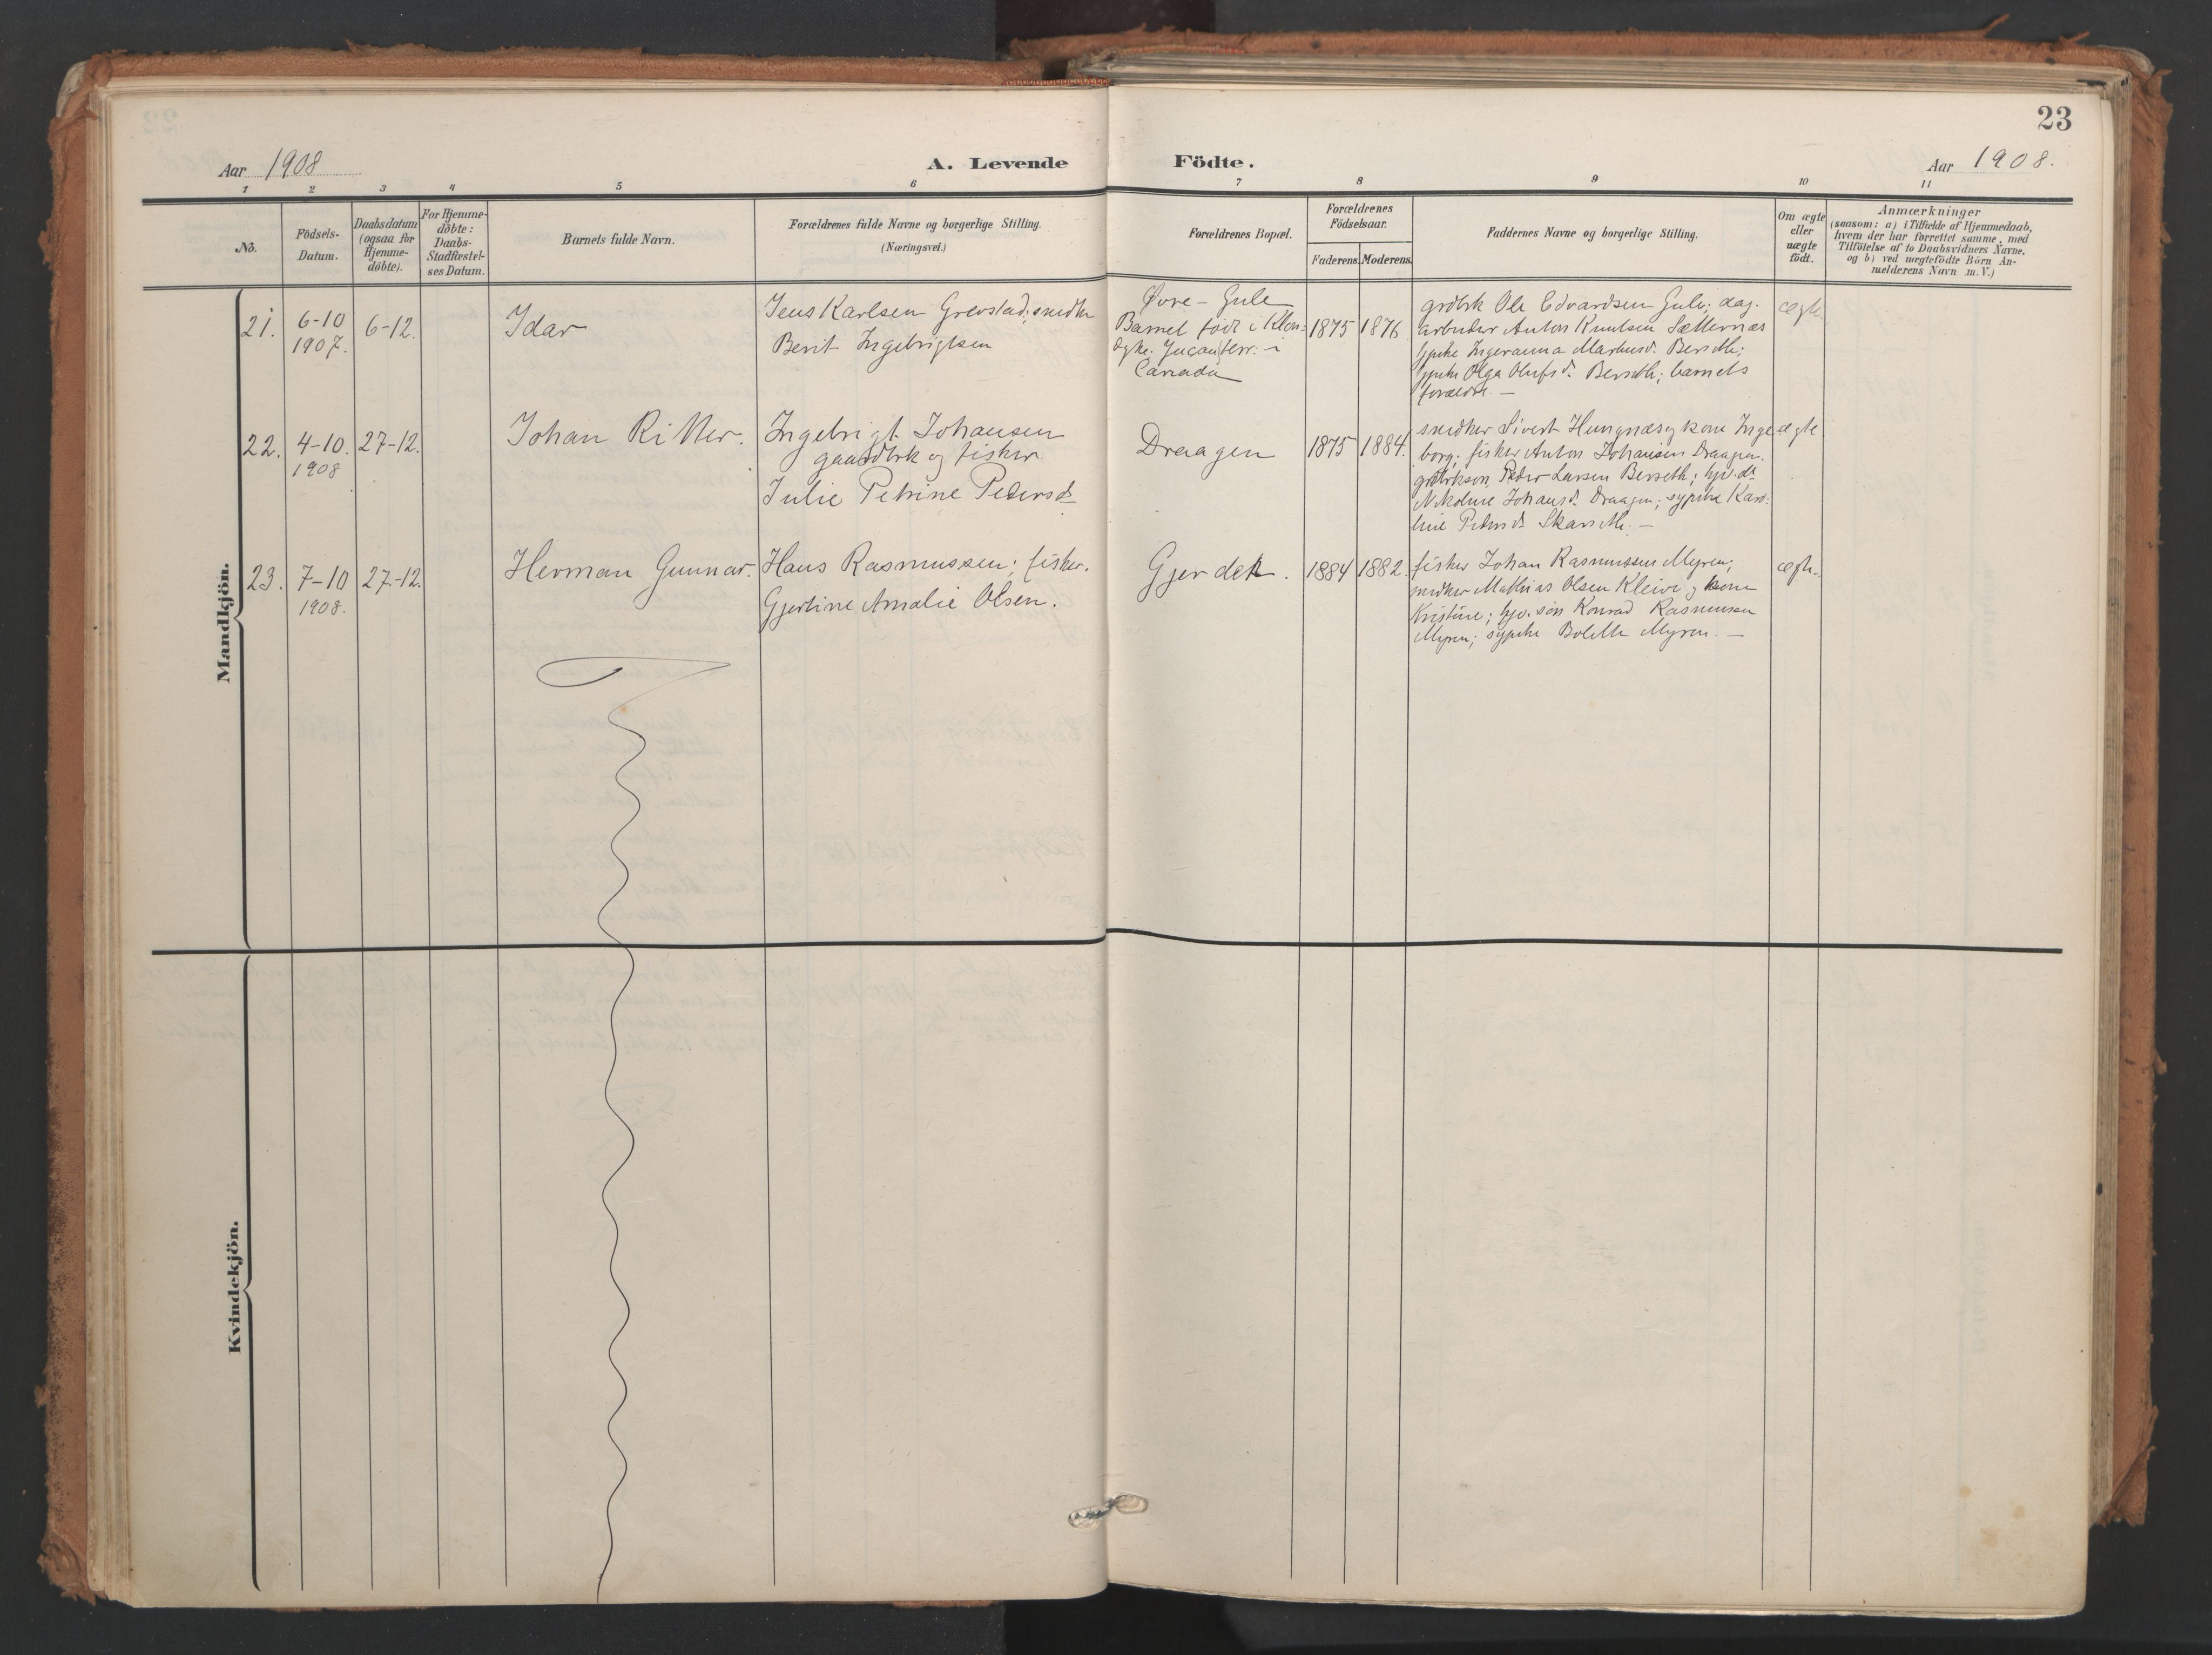 23
Aar 1908
A. Levende Födte.
Aar 1908.
1 2 3 4 5 6 7 8 9 10 11
No.
Födsels-
Datum.
Daabsdatum
(ogsaa for
Hjemme-
döbte).
For Hjemme-
döbte:
Daabs-
Stadfæstel-
ses Datum.
Barnets fulde Navn.
Forældrenes fulde Navne og borgerlige Stilling.
(Næringsvei.)
Forældrenes Bopæl.
Forældrenes
Födselsaar.
Faderens. Moderens.
Faddernes Navne og borgerlige Stilling.
Om ægte
eller
uægte
födt.
Anmærkninger
(saasom: a) i Tilfælde af Hjemmedaab,
hvem der har forrettet samme, med
Tilföielse af to Daabsvidners Navne.
og b) ved uægtefödte Börn An-
melderens Navn m.V.)
Mandkjön.
21.
6-10
1907.
6-12.
Idar
Jens Karlsen Grevstad; snedker
Berit Ingebrigtsen
Øvre-Gule
Barnet född i Klon-
dyke. terr. i
Canada
1875
1876
grdbrk Ole Edvardsen Gule; dag-
arbeider Anton Knutsen Sætternæs
sypike Ingeranna Markusd. Berseth;
sypike Olga Olufsd. Berseth; barnets
forældre. —
ægte.
22.
4-10.
1908
27-12.
Johan Ritter.
Ingebrigt Johansen
gaardbrk og fisker
Julie Petrine Pedersd.
Draagen
1875
1884.
snedker Sivert Hungnæs og kone Inge-
borg; fisker Anton Johansen Draagen.
grdbrksøn Peder Larsen Berseth; hjv. dt.
Nikoline Johansd. Draagen; sypike Karo-
line Pedersd. Skarseth. —
ægte
23.
7-10
1908.
27.-12.
Herman Gunnar.
Hans Rasmussen; fisker.
Gjertine Amalie Olsen.
Gjerdet.
1884
1882.
fisker Johan Rasmussen Myren;
snedker Mathias Olsen Kleive og kone
Kristine; hjv. søn Konrad Rasmussen
Myren; sypike Bolette Myren. —
ægte.
Kvindekjön.